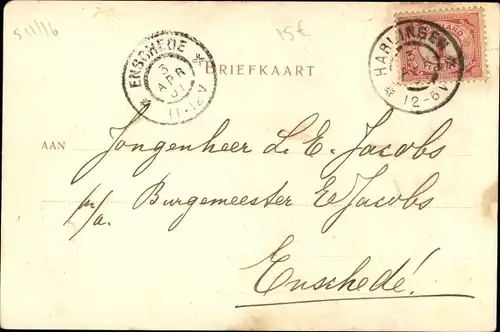 54116
15€
ENSCHEDE
3
APR
01
11-12V
BRIEFKAART
HARLINGEN
12-6V
AAN Jongenheer L. E. Jacobs
p/a. Burgemeester E Jacobs
Enschedé!